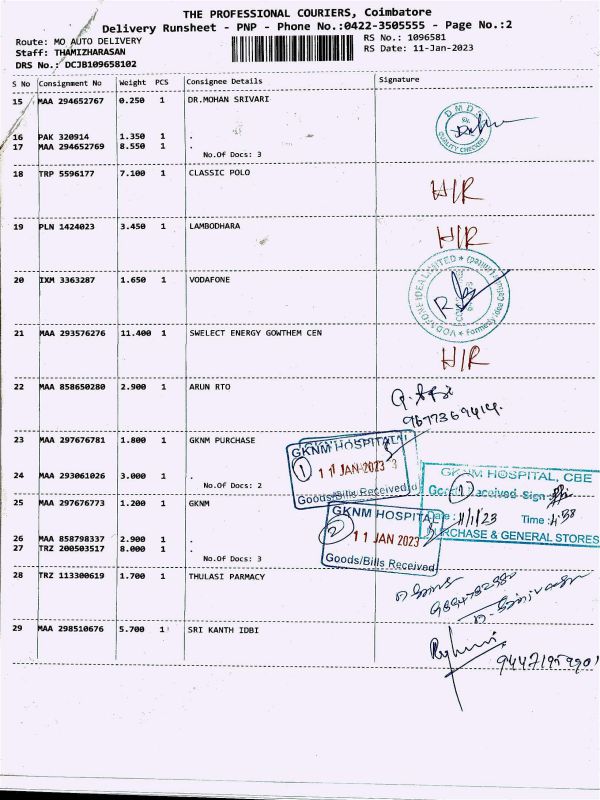 THE PROFESSIONAL COURIERS, Coimbatore
Delivery Runsheet - PNP - Phone No.:0422-3505555 - Page No.:2
Route: MO AUTO DELIVERY
RS No.: 1096581
Staff: THAMIZHARASAN
RS Date: 11-Jan-2023
DRS No.: DCJB109658102
S No Consignment No Weight PCS Consignee Details Signature
15 MAA 294652767 0.250 1 DR.MOHAN SRIVARI
DMDS
QUALITY CHECKED
16 PAK 320914 1.350 1 .
17 MAA 294652769 8.550 1 .
No.Of Docs: 3
18 TRP 5596177 7.100 1 CLASSIC POLO
H/R
19 PLN 1424023 3.450 1 LAMBODHARA
H/R
20 IXM 3363287 1.650 1 VODAFONE
VODAFONE IDEA LIMITED
21 MAA 293576276 11.400 1 SWELECT ENERGY GOWTHEM CEN
H/R
22 MAA 858650280 2.900 1 ARUN RTO
23 MAA 297676781 1.800 1 GKNM PURCHASE
GKNM HOSPITAL
1 11 JAN 2023
Goods/Bills Received
24 MAA 293061026 3.000 1 .
No.Of Docs: 2
GKNM HOSPITAL, CBE
25 MAA 297676773 1.200 1 GKNM
GKNM HOSPITAL
2 11 JAN 2023
Goods/Bills Received
11/1/23 Time :
PURCHASE & GENERAL STORES
26 MAA 858798337 2.900 1 .
27 TRZ 200503517 8.000 1 .
No.Of Docs: 3
28 TRZ 113300619 1.700 1 THULASI PARMACY
29 MAA 298510676 5.700 1 SRI KANTH IDBI